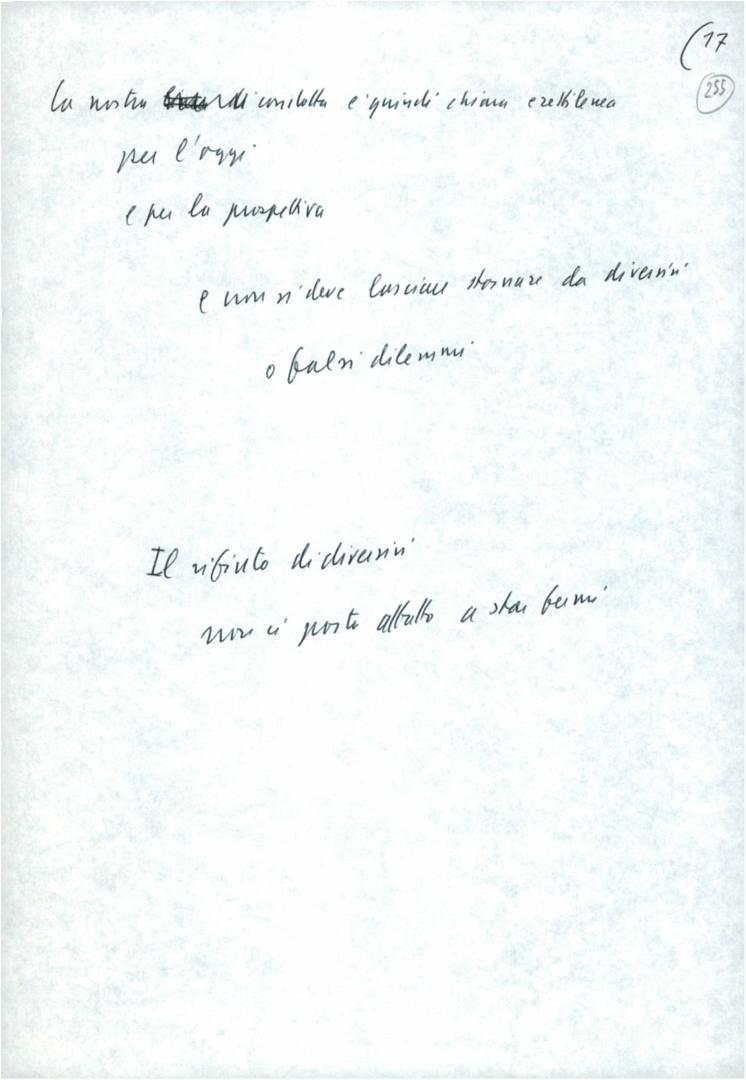 (17
255
La nostra di condotta è quindi chiara e rettilinea
per l'oggi
e per la prospettiva
e non si deve lasciare stornare da diversivi
o falsi dilemmi
Il rifiuto di diversivi
non ci porta affatto a star fermi